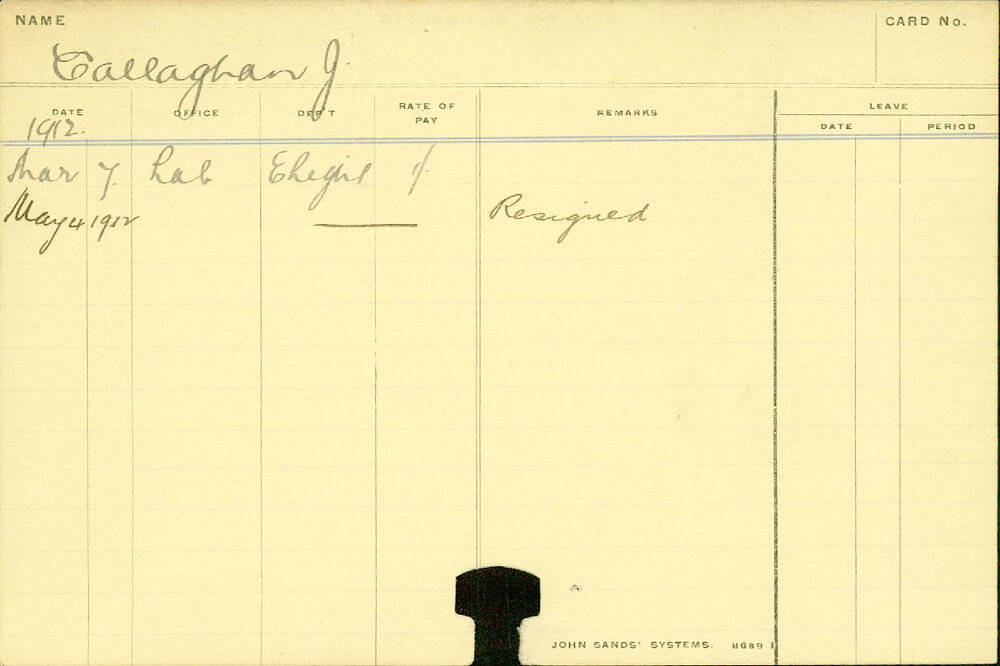 NAME
CARD No.
Callaghan J.
DATE OFFICE DEP'T RATE OF PAY REMARKS LEAVE
DATE PERIOD
1912.
Mar 7. Lab Eleght 1/.
May 4 1912 Resigned
JOHN SANDS' SYSTEMS. 8689 1